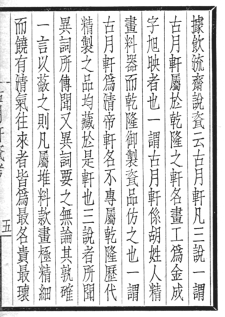 據飲流齋說瓷云古月軒凡三說一謂
古月軒屬於乾隆之軒名畫工爲金成
字旭映者也一謂古月軒係胡姓人精
畫料器而乾隆御製瓷品仿之也一謂
古月軒爲清帝軒名不專屬乾隆歷代
精製之品均藏於是軒也三說者所聞
異詞所傳聞又異詞要之無論其孰確
一言以蔽之則凡屬堆料款畫極精細
而饒有清氣往來者皆爲最名貴最瓌
五